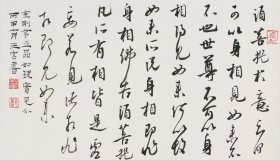 須菩提於意云何
可以身相見如來
不不也世尊不可以身
相得見如來何以故
如來所說身相即非
身相佛告須菩提
凡所有相皆是虛
妄若見諸相非相
即見如來
金剛經第五品如理實見分